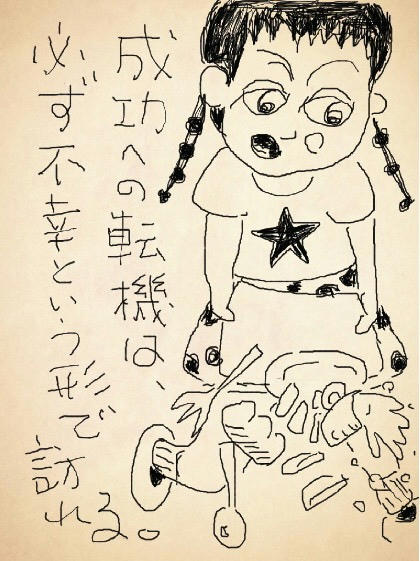 成功への転機は、
必ず不幸という形で
訪れる。